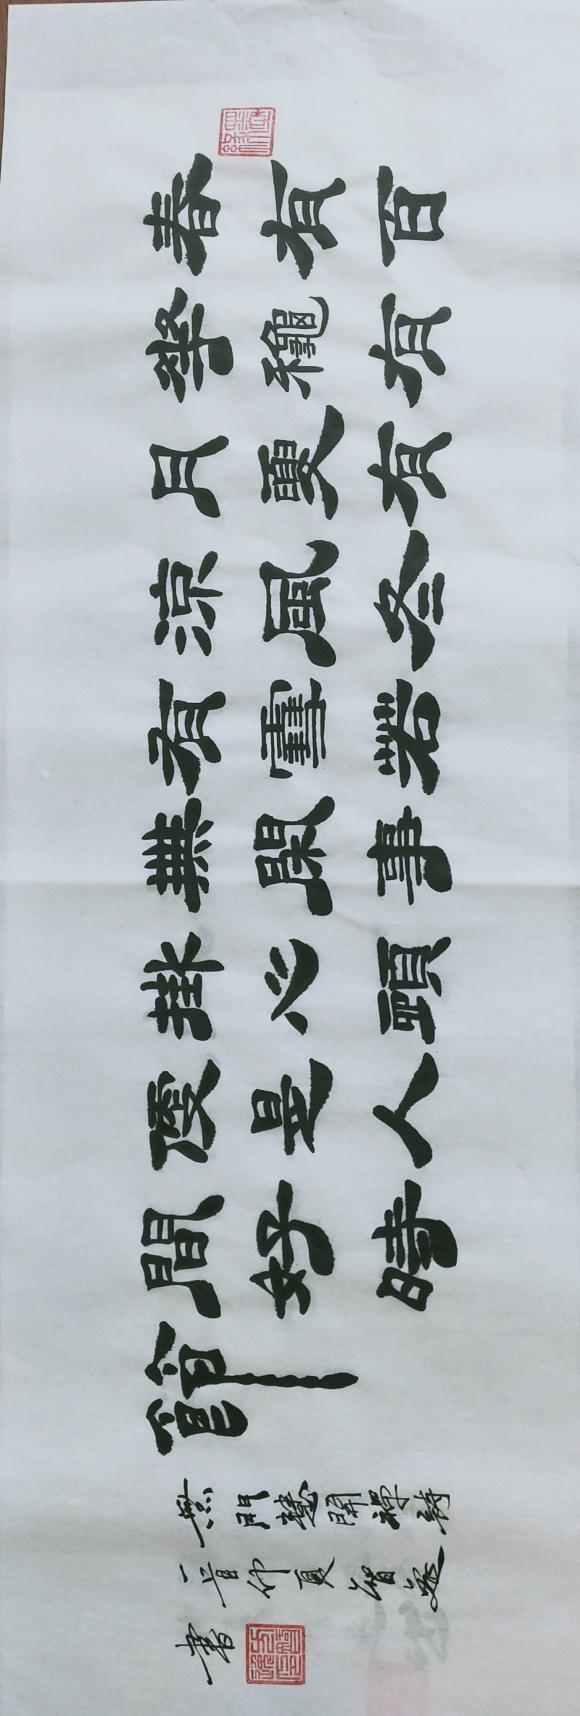 春有百
華穐有
月夏有
涼風冬
有雪若
無閑事
掛心頭
便是人
間好時
節
無門慧開禪詩
一首仲夏
書